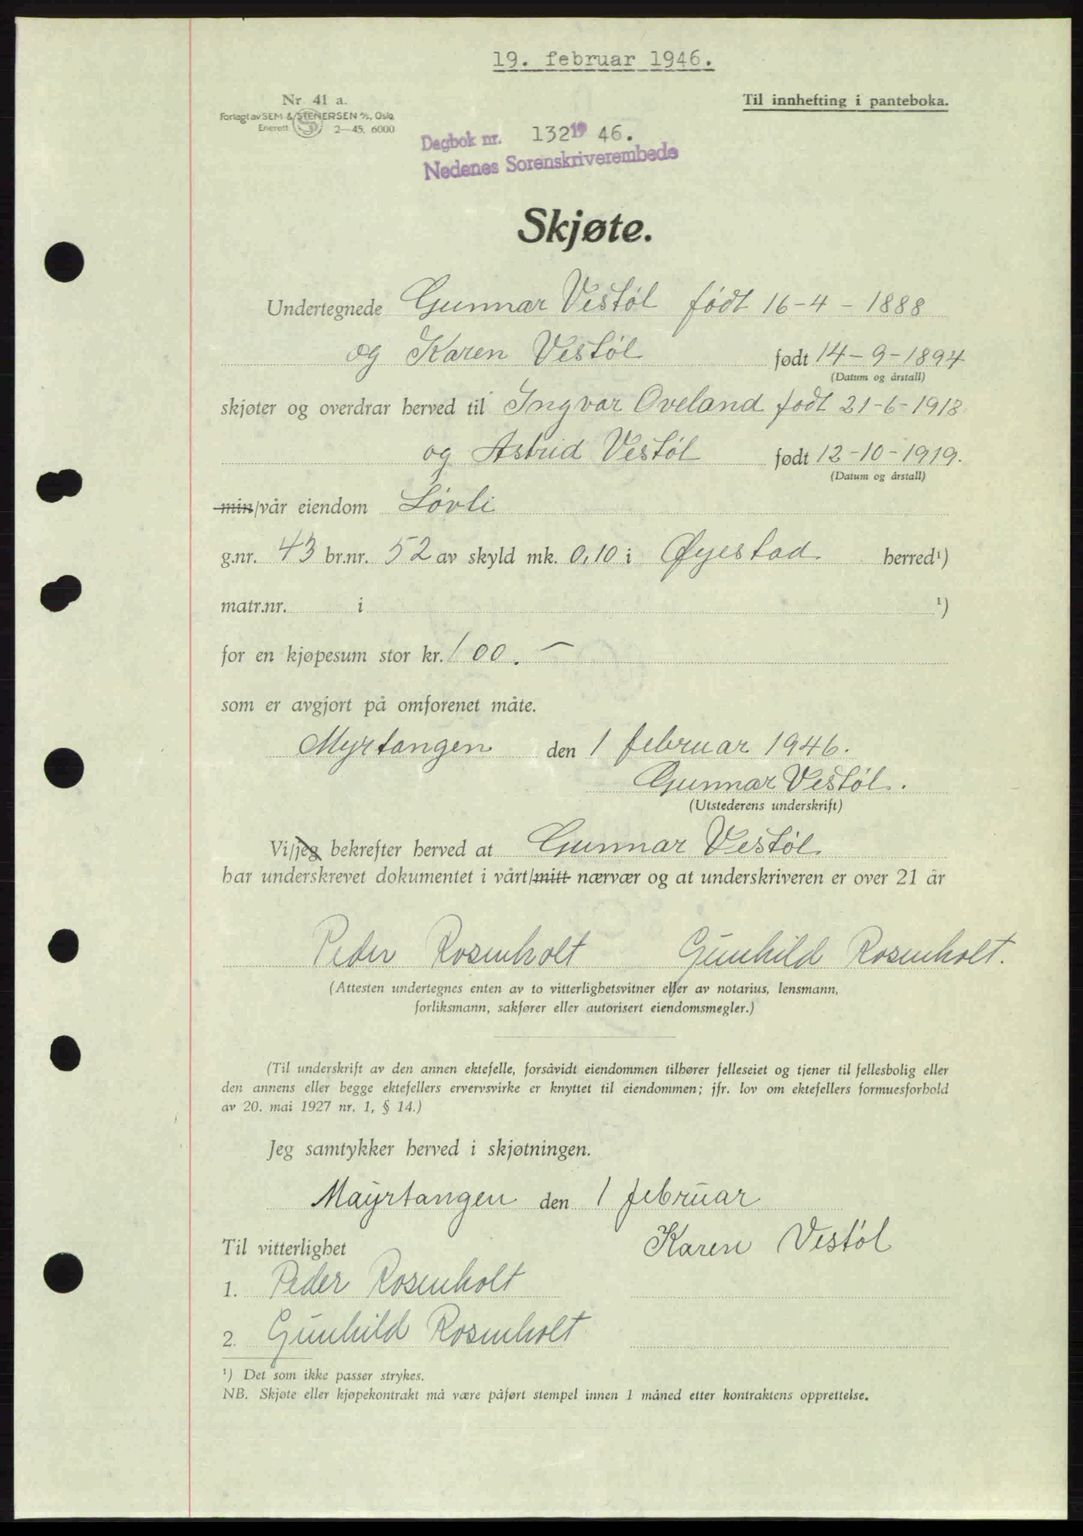 19. februar 1946.
Nr. 41 a.
Til innhefting i panteboka.
Forlagt av SEM & STENERSEN A/S, Oslo
Enerett 2—45. 6000
Dagbok nr. 132 19 46.
Nedenes Sorenskriverembede
Skjøte.
Undertegnede Gunnar Vestøl født 16-4-1888
og Karen Vestøl født 14-9-1894
(Datum og årstall)
skjøter og overdrar herved til Ingvar Oveland født 21-6-1918
og Astrid Vestøl født 12-10-1919.
(Datum og årstall)
min/vår eiendom Løvli
g.nr. 43 br.nr. 52 av skyld mk. 0,10 i Øyestad herred¹)
matr.nr. i ¹)
for en kjøpesum stor kr. 100.—
som er avgjort på omforenet måte.
Myrtangen den 1 februar 1946.
Gunnar Vestøl.
(Utstederens underskrift)
Vi/jeg bekrefter herved at Gunnar Vestøl
har underskrevet dokumentet i vårt/mitt nærvær og at underskriveren er over 21 år
Peder Rosenholt Gunhild Rosenholt.
(Attesten undertegnes enten av to vitterlighetsvitner eller av notarius, lensmann,
forliksmann, sakfører eller autorisert eiendomsmegler.)
(Til underskrift av den annen ektefelle, forsåvidt eiendommen tilhører felleseiet og tjener til fellesbolig eller
den annens eller begge ektefellers ervervsvirke er knyttet til eiendommen; jfr. lov om ektefellers formuesforhold
av 20. mai 1927 nr. 1, § 14.)
Jeg samtykker herved i skjøtningen.
Mayrtangen den 1 februar
Til vitterlighet Karen Vestøl
1. Peder Rosenholt
2. Gunhild Rosenholt
¹) Det som ikke passer strykes.
NB. Skjøte eller kjøpekontrakt må være påført stempel innen 1 måned etter kontraktens opprettelse.